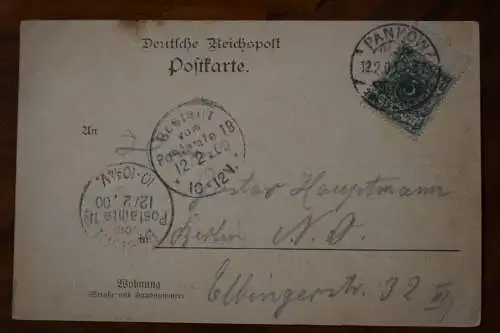 Deutsche Reichspost
Postkarte.
PANKOW
12.2.0
An
Bestellt
vom
Postamte 18
12/2.00
10-12V.
10-10¾V.
12/2.00
Postamte
vom
Gustav Hauptmann
in
Berlin N. O.
Wohnung
(Straße und Hausnummer)
Elbingerstr. 32 III